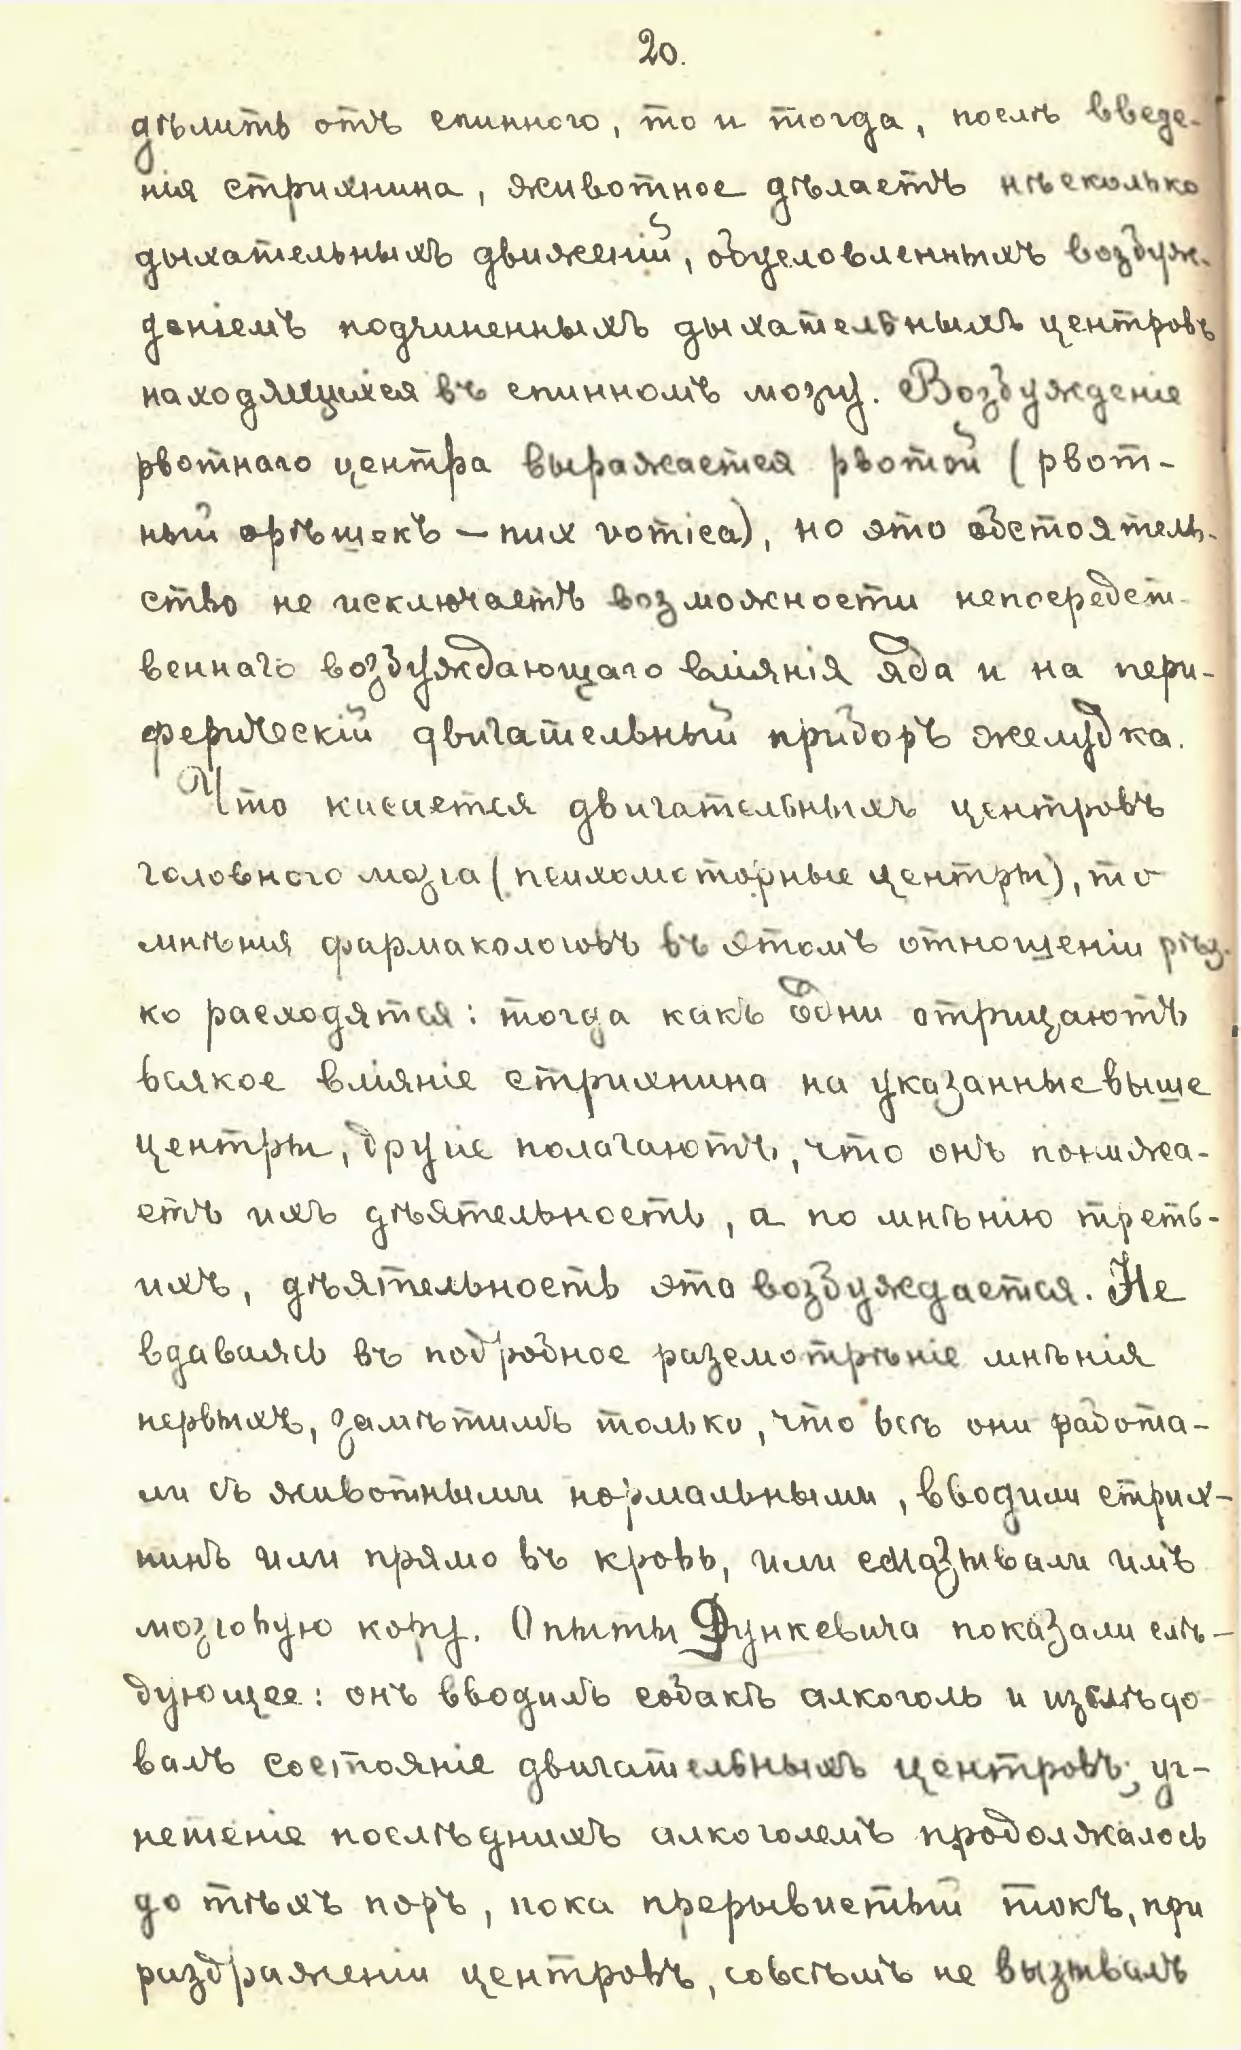 20.
дѣлить отъ спинного, то и тогда, послѣ введе-
нія стрихнина, животное дѣлаетъ нѣсколько
дыхательныхъ движеній, обусловленныхъ возбуж-
деніемъ подчиненныхъ дыхательныхъ центровъ
находящихся въ спинномъ мозгу. Возбужденіе
рвотнаго центра выражается рвотой (рвот-
ный орѣшекъ — nux vomica), но это обстоятель-
ство не исключаетъ возможности непосредст-
веннаго возбуждающаго вліянія яда и на пери-
ферическій двигательный приборъ желудка.
Что касается двигательныхъ центровъ
головного мозга (психомоторные центры), то
мнѣния фармакологовъ въ этомъ отношеніи рѣз-
ко расходятся: тогда какъ одни отрицаютъ
всякое вліяніе стрихнина на указанные выше
центры, другіе полагаютъ, что онъ понижа-
етъ ихъ дѣятельность, а по мнѣнію треть-
ихъ, дѣятельность эта возбуждается. Не
вдаваясь въ подробное разсмотрѣніе мнѣнія
первыхъ, замѣтимъ только, что всѣ они работа-
ли съ животными нормальными, вводили стрих-
нинъ или прямо въ кровь, или смазывали имъ
мозговую кору. Опыты Дункевича показали слѣ-
дующее: онъ вводилъ собакѣ алкоголь и изслѣдо-
валъ состояніе двигательныхъ центровъ; уг-
нетеніе послѣднихъ алкоголемъ продолжалось
до тѣхъ поръ, пока прерывистый токъ, при
раздраженіи центровъ, совсѣмъ не вызывалъ